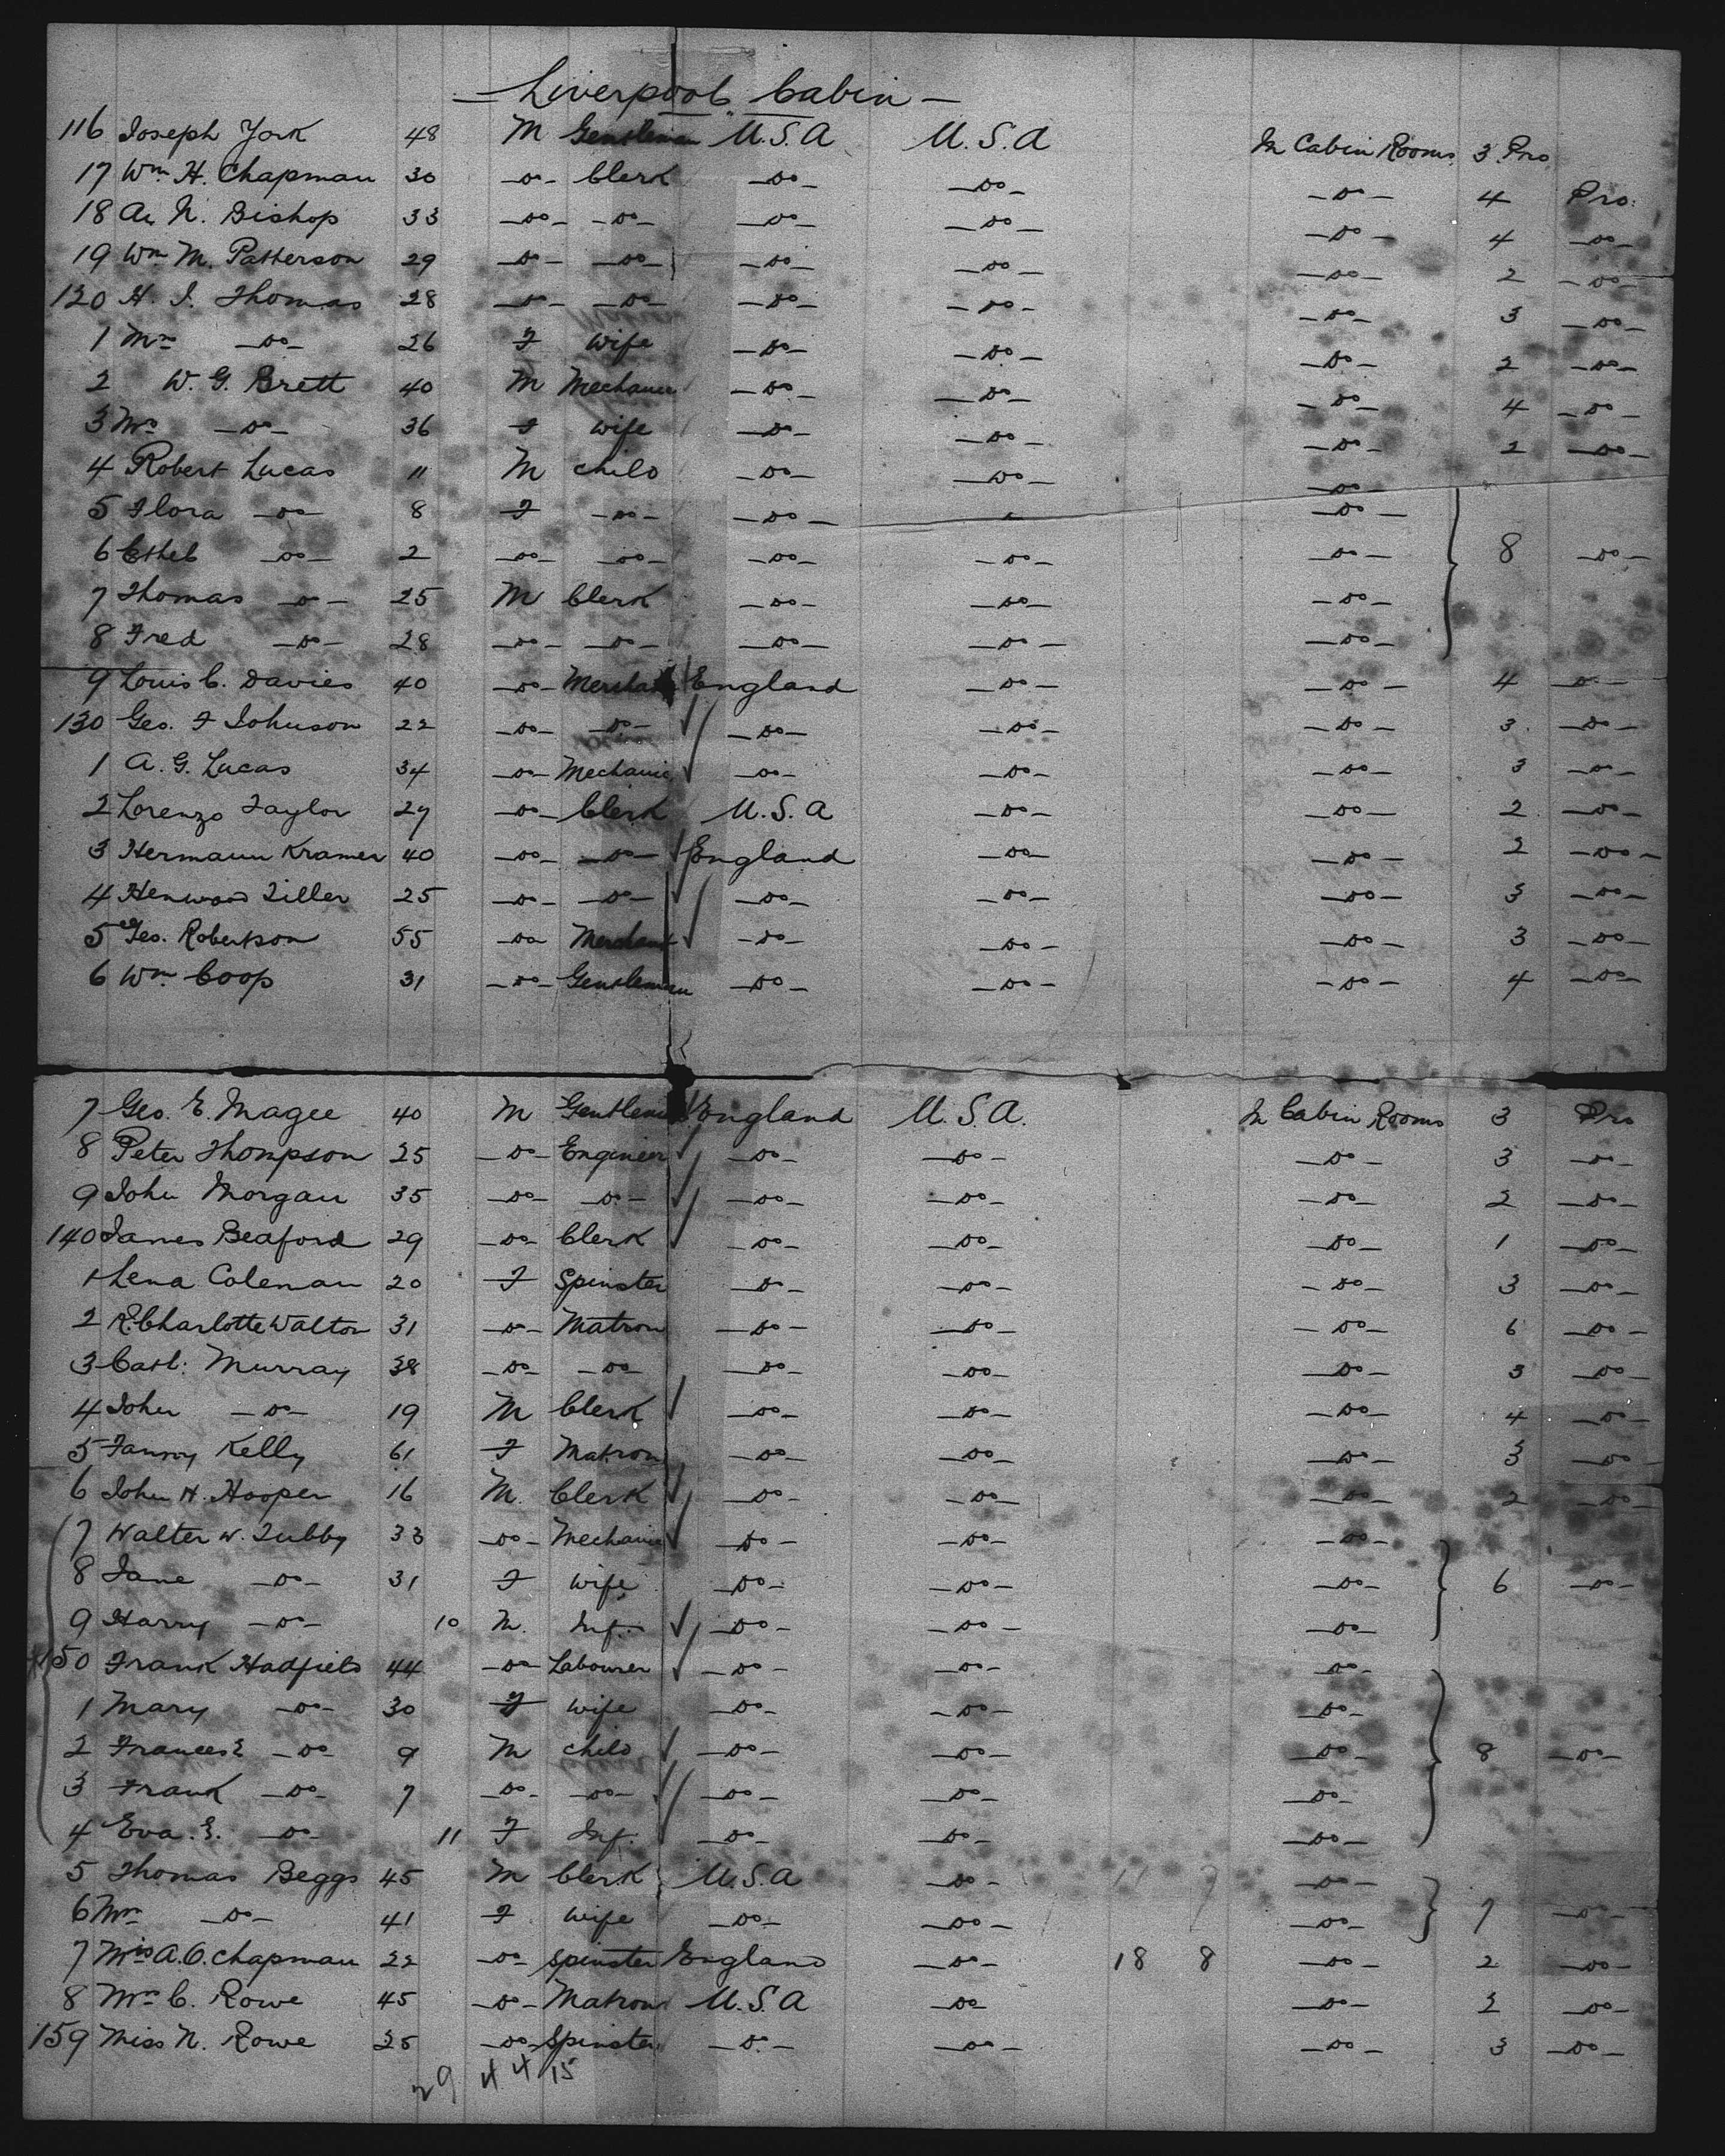 — Liverpool Cabin —
116 Joseph York 48 M Gentleman U.S.A U.S.A In Cabin Rooms 3 Pro
17 Wm H. Chapman 30 —do— Clerk —do— —do— —do— 4 Pro.
18 A. N. Bishop 33 —do— —do— —do— —do— —do— 4 —do—
19 Wm M. Patterson 29 —do— —do— —do— —do— —do— 2 —do—
120 H. J. Thomas 28 —do— —do— —do— —do— —do— 3 —do—
1 Mrs —do— 26 F Wife —do— —do— —do— 2 —do—
2 W. G. Brett 40 M Mechanic —do— —do— —do— 4 —do—
3 Mrs —do— 36 F Wife —do— —do— —do— 2 —do—
4 Robert Lucas 11 M child —do— —do— —do—
5 Flora —do— 8 F —do— —do— —do—
6 Ethel —do— 2 —do— —do— —do— —do— —do— 8 —do—
7 Thomas —do— 25 M Clerk —do— —do— —do—
8 Fred —do— 28 —do— —do— —do— —do— —do—
9 Louis C. Davies 40 —do— Merchant England —do— —do— 4 —do—
130 Geo. F Johnson 22 —do— —do— —do— —do— —do— 3 —do—
1 A. G. Lucas 34 —do— Mechanic —do— —do— —do— 3 —do—
2 Lorenzo Taylor 27 —do— Clerk U.S.A —do— —do— 2 —do—
3 Hermann Kramer 40 —do— —do— England —do— —do— 2 —do—
4 Henwood Tiller 25 —do— —do— —do— —do— —do— 3 —do—
5 Geo. Robertson 55 —do— Merchant —do— —do— —do— 3 —do—
6 Wm Coop 31 —do— Gentleman —do— —do— —do— 4 —do—
7 Geo. E. Magee 40 M Gentleman England U.S.A. In Cabin Rooms 3 Pro
8 Peter Thompson 25 —do— Engineer —do— —do— —do— 3 —do—
9 John Morgan 35 —do— —do— —do— —do— —do— 2 —do—
140 James Beaford 29 —do— Clerk —do— —do— —do— 1 —do—
1 Lena Coleman 20 F Spinster —do— —do— —do— 3 —do—
2 R. Charlotte Walton 31 —do— Matron —do— —do— —do— 6 —do—
3 Cath: Murray 38 —do— —do— —do— —do— —do— 3 —do—
4 John —do— 19 M Clerk —do— —do— —do— 4 —do—
5 Fanny Kelly 61 F Matron —do— —do— —do— 3 —do—
6 John H. Hooper 16 M. Clerk —do— —do— —do— 2 —do—
7 Walter W. Tubby 33 —do— Mechanic —do— —do— —do—
8 Jane —do— 31 F Wife —do— —do— —do— 6 —do—
9 Harry —do— 10 M. Inf. —do— —do— —do—
150 Frank Hadfield 44 —do— Labourer —do— —do— —do—
1 Mary —do— 30 F wife —do— —do— —do—
2 Frances E —do— 9 M child —do— —do— —do— 8 —do—
3 Frank —do— 7 —do— —do— —do— —do— —do—
4 Eva. E. —do— 11 F Inf. —do— —do— —do—
5 Thomas Beggs 45 M Clerk U.S.A —do— 11 7 —do—
6 Mrs —do— 41 F Wife —do— —do— —do— 7 —do—
7 Miss A. O. Chapman 22 —do— Spinster England —do— 18 8 —do— 2 —do—
8 Mrs C. Rowe 45 —do— Matron U.S.A —do— —do— 2 —do—
159 Miss N. Rowe 25 —do— Spinster —do— —do— —do— 3 —do—
29 4 4 15